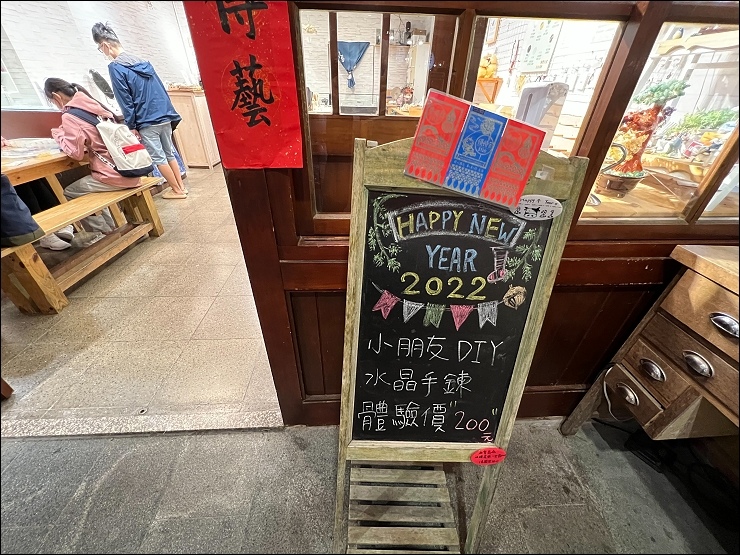 藝
HAPPY NEW
YEAR
2022
小朋友 DIY
水晶手鍊
體驗價"200"
元